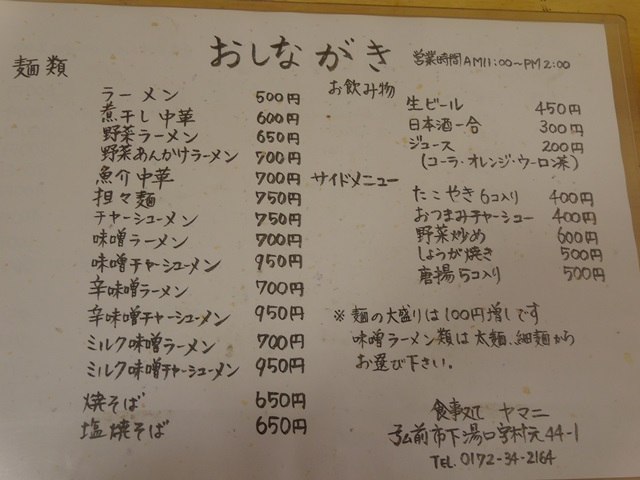 おしながき
営業時間 AM11:00~PM2:00
麺類
ラーメン 500円
煮干し中華 600円
野菜ラーメン 650円
野菜あんかけラーメン 700円
魚介中華 700円
担々麺 750円
チャーシューメン 750円
味噌ラーメン 700円
味噌チャーシューメン 950円
辛味噌ラーメン 700円
辛味噌チャーシューメン 950円
ミルク味噌ラーメン 700円
ミルク味噌チャーシューメン 950円
焼そば 650円
塩焼そば 650円
お飲み物
生ビール 450円
日本酒一合 300円
ジュース 200円
(コーラ・オレンジ・ウーロン茶)
サイドメニュー
たこやき6コ入り 400円
おつまみチャーシュー 400円
野菜炒め 600円
しょうが焼き 500円
唐揚5コ入り 500円
※ 麺の大盛りは100円増しです
味噌ラーメン類は太麺、細麺から
お選び下さい。
食事処 ヤマニ
弘前市下湯口字村元44-1
TEL. 0172-34-2164